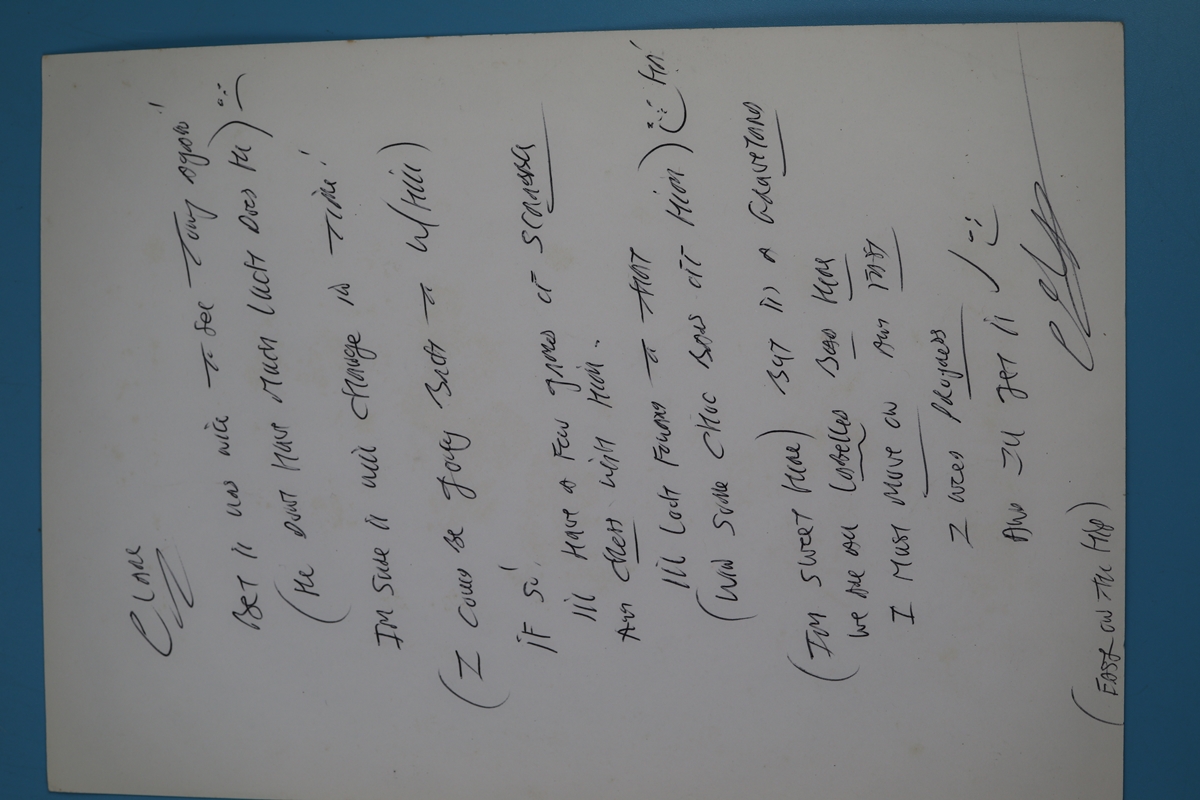 Clare
BET it was nice To See Tony again!
(He Dont Have Much Luck Does He) :-)
Im Sure it will Change in Time!
(I Could Be going Back To W/Hill)
iF So!
Ill Have a Few games of Scrabble
And Chess with Him.
Ill Look Forward To That
(Win Some Choc Bars off Him) Ha!
(Im Sweet Here) But its a Graveyard
We are all Labelled Bad Here
I Must Move on And
I Need Progress
And Ill get it / :-)
(Easy on The